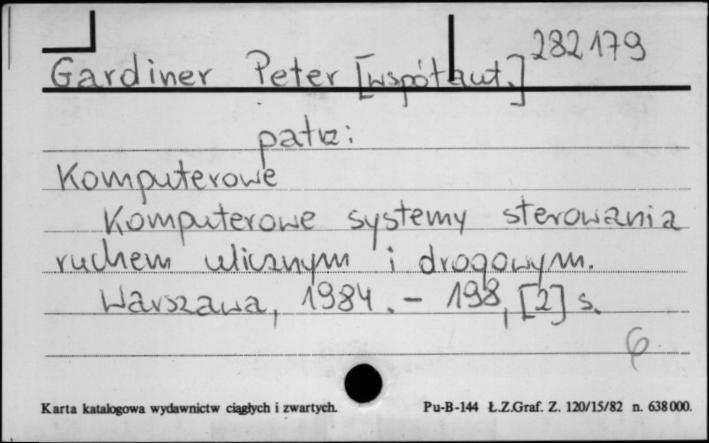 282179
Gardiner Peter [współaut.]
patrz:
Komputerowe
Komputerowe systemy sterowania
ruchem ulicznym i drogowym.
Warszawa, 1984. – 198, [2] s.
6
Karta katalogowa wydawnictw ciągłych i zwartych. Pu-B-144 Ł.Z.Graf. Z. 120/15/82 n. 638000.